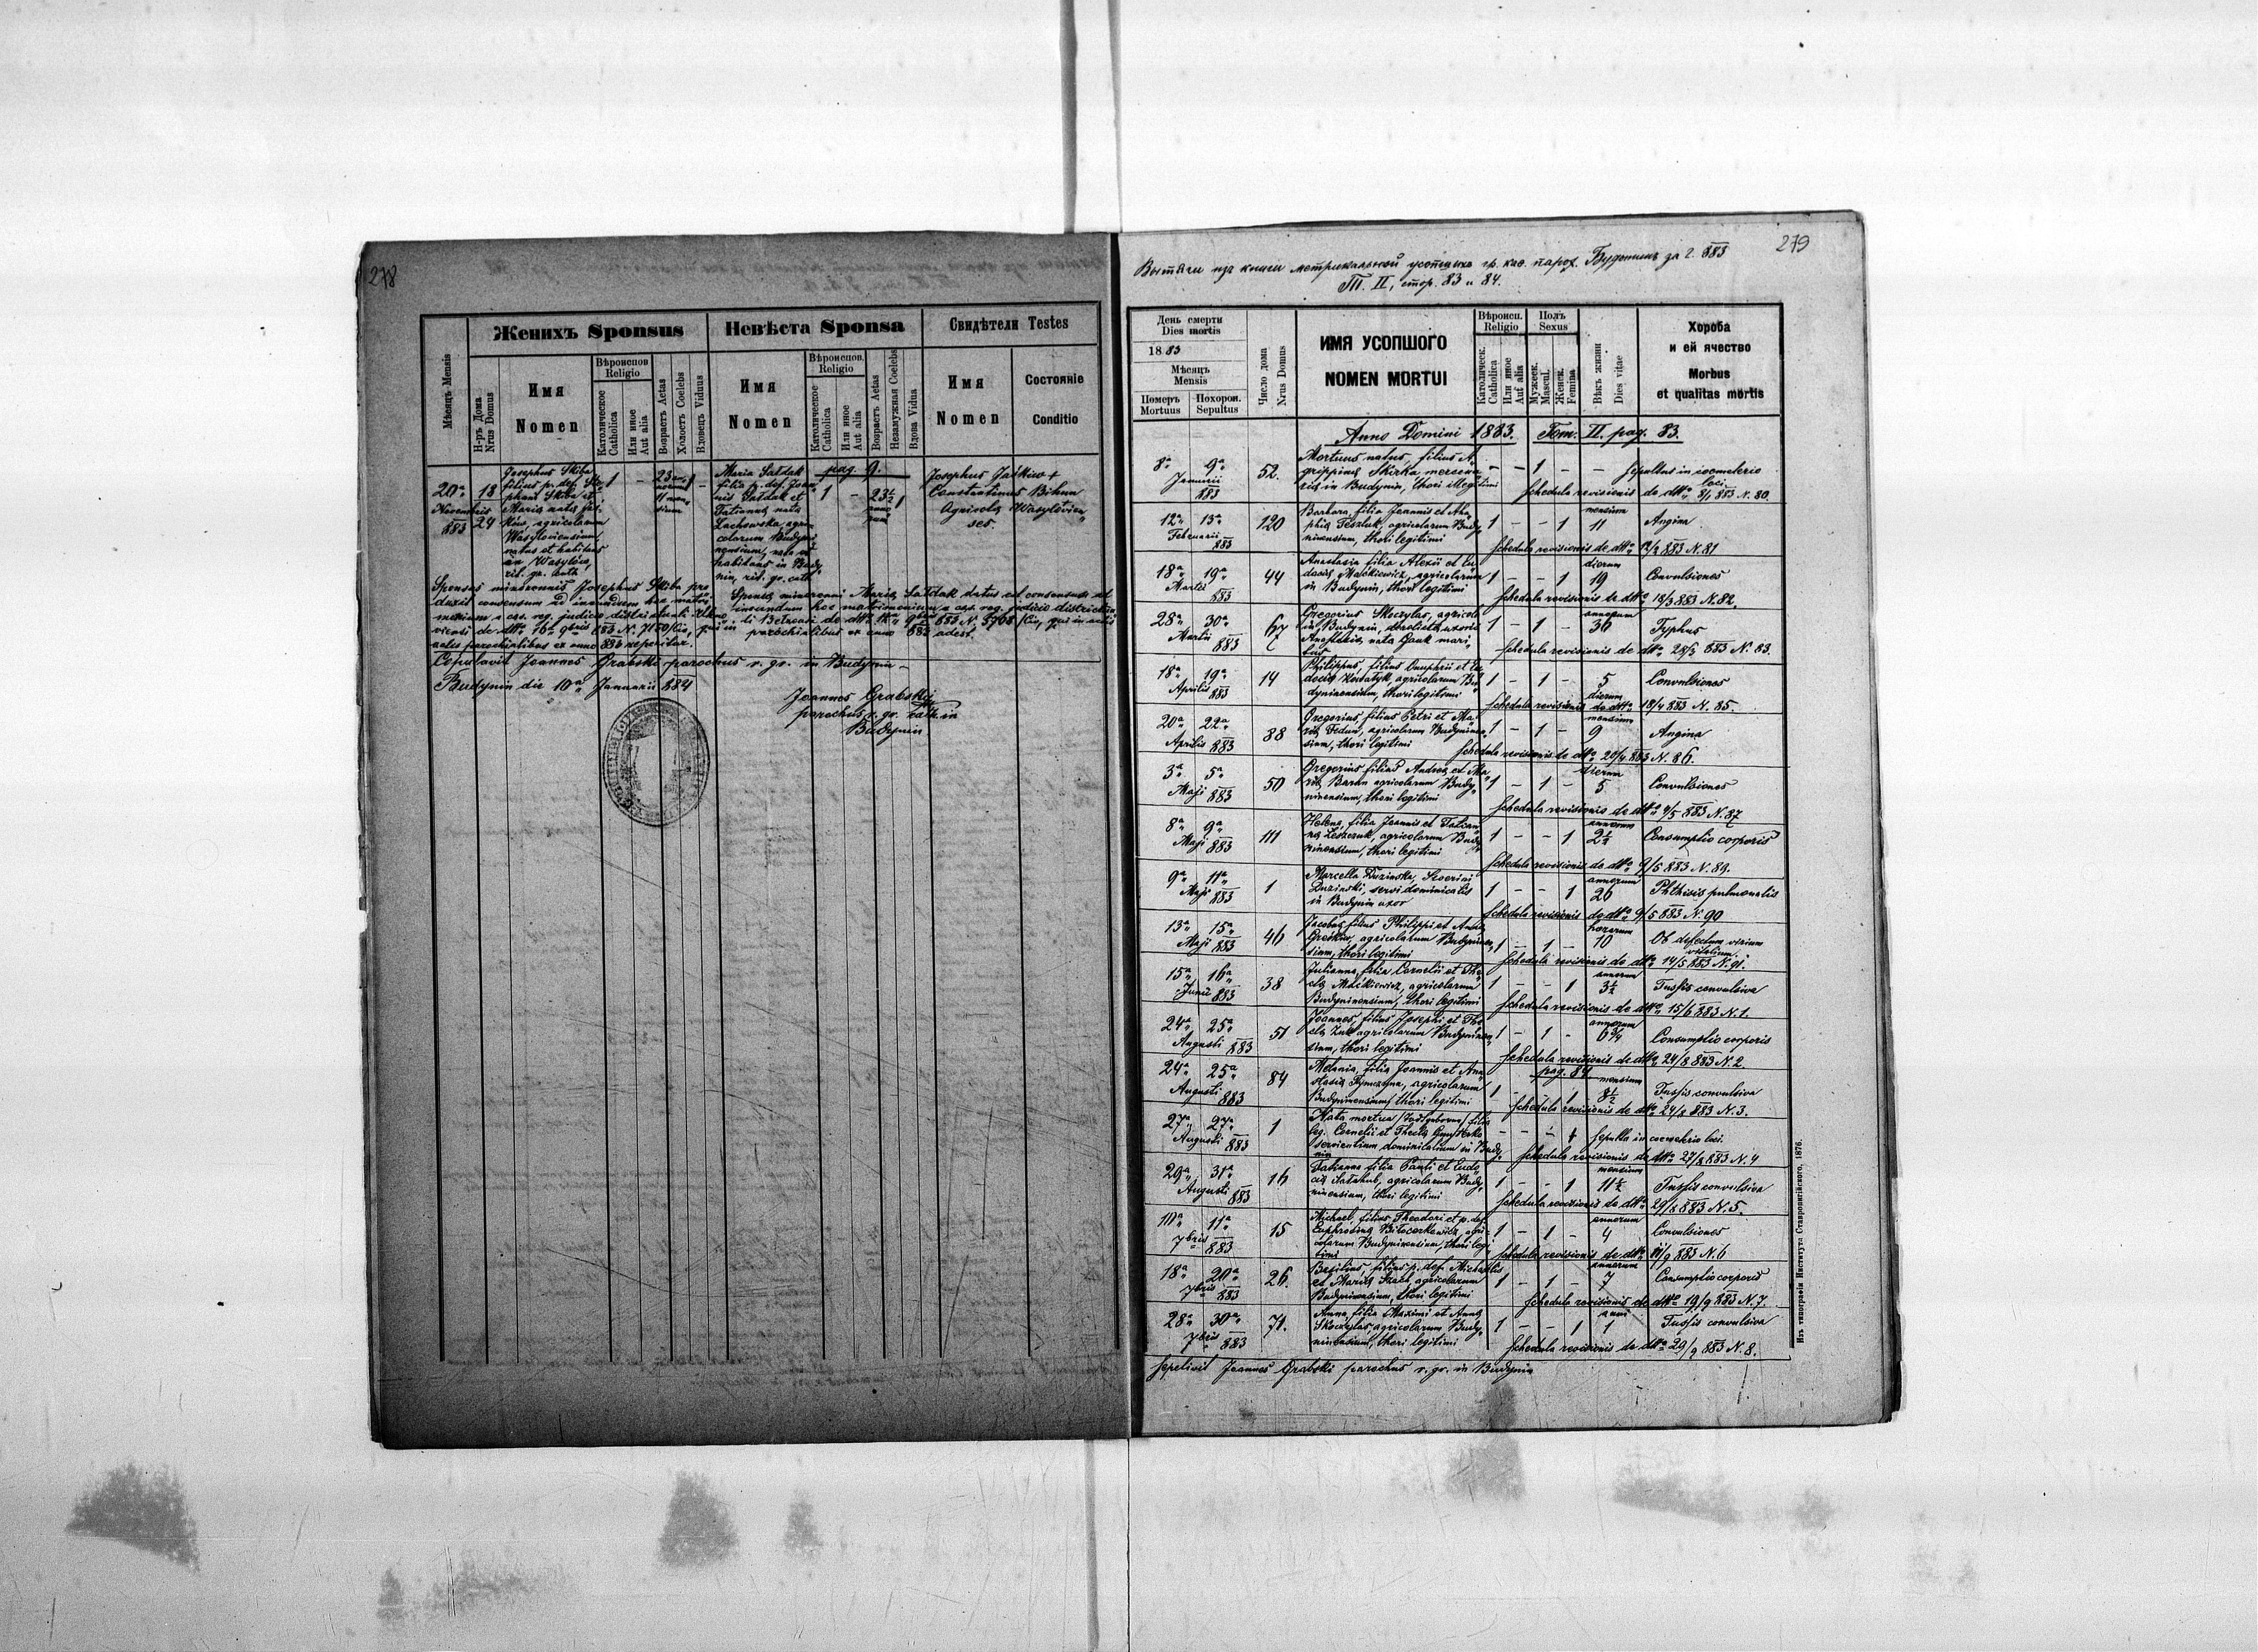 278
Женихъ Sponsus
Невѣста Sponsa
Свидѣтели Testes
Мѣсяцъ Mensis
Н-ръ Дома
Nrus Domus
Имя
Nomen
Вѣроиспов
Religio
Католическое
Catholica
Или иное
Aut alia
Возрастъ Aetas
Холостъ Coelebs
Вдовецъ Viduus
Имя
Nomen
Вѣроиспов.
Religio
Католическое
Catholica
Или иное
Aut alia
Возрастъ Aetas
Незамужная Coelebs
Вдова Vidua
Имя
Nomen
Состояніе
Conditio
pag. 9.
20a
Novembris
883
13
24
Josephus Skiba
filius p. def. Ste
phani Skiba et
Maria nata
agricolarum
Wasyloviensium,
natus et habitans
in Wasylów,
rit. gr. cath.
1 – 23 1 –
11 men
sium
Maria Sałdak
filia p. def. Joan
nis Sałdak et
Tatianna nata
Lachowska, agri
colarum Budyni
nensium, nata et
habitans in Budy
nin, rit. gr. cath.
1 – 23½ 1
Josephus Jaśkiw +
Constantinus Bihun
Agricola Wasylovien
ses.
Sponsus minorennis Josephus Skiba pro
duxit consensum ad ineundum hoc matri
monium a caes. reg. judicio districtuali
actis parochialibus ex anno 883 reperitur.
Sponsa minorenni Maria Sałdak datus est consensus ad
ineundum hoc matrimonium a caes. reg. judicio districtua
li Belzensi de dtto 9bris 883 N. 5768/Civ, qui in actis
parochialibus ex anno 883 adest.
Copulavit Joannes Grabski parochus r. gr. in Budynin –
Budynin die 10a Januarii 884
Joannes Grabskij
parochus r. gr. cath. in
Budynin
279
Вытягъ изъ книги метрикальной усопшихъ гр. каѳ. парох. Будынинъ за г. 883
Т. II, стор. 83 и 84.
День смерти
Dies mortis
1883
Мѣсяцъ
Mensis
Померъ
Mortuus
Похорон.
Sepultus
Число дома
Nrus Domus
ИМЯ УСОПШОГО
NOMEN MORTUI
Вѣроисп.
Religio
Католическ.
Catholica
Или иное
Aut alia
Полъ
Sexus
Мужеск.
Mascul.
Женск.
Femina
Вѣкъ жизни
Dies vitae
Хороба
и ей ячество
Morbus
et qualitas mortis
Anno Domini 1883. Tom. II. pag. 83.
8a 9a
Januarii
883
52.
Mortuus natus, filius A
grippina Skirka mercena
ria in Budynin, thori illegitimi
– – 1 – – sepultus in coemeterio
loci
Schedula revisionis de dtto 8/1 883 N. 80.
12a 13a
Februarii
883
120
Barbara, filia Joannis et Aha
phia Teszluk, agricolarum Budy
ninensium, thori legitimi
1 – – 1
mensium
11
Angina
Schedula revisionis de dtto 12/2 883 N. 81
18a 19a
Martii
883
44
Anastasia filia Alexii et Eu
docia Maćkiewicz, agricolarum
in Budynin, thori legitimi
1 – – 1
dierum
19
Convulsiones
Schedula revisionis de dtto 18/3 883 N. 82.
28a 30a
Martii
883
67
Gregorius Skoczylas, agricola
in Budynin, derelicta uxoris
Anastasia nata Gauk mari
tus
1 – 1 –
annorum
36
Typhus
Schedula revisionis de dtto 28/3 883 N. 83.
18a 19a
Aprilis
883
14
Philippus, filius Onuphrii et Eu
docia Kowalyk, agricolarum Bu
dyninensium, thori legitimi
1 – 1 –
5
dierum
Convulsiones
Schedula revisionis de dtto 18/4 883 N. 85.
20a 22a
Aprilis
883
88
Gregorius, filius Petri et Ma
ria Fedun, agricolarum Budyninen
sium, thori legitimi
1 – 1 –
mensium
9
Angina
Schedula revisionis de dtto 20/4 883 N. 86.
3a 5a
Maji 883
50
Gregorius filius Andrea et Ma
ria Baran agricolarum Budy
ninensium, thori legitimi
1 – 1 –
dierum
5
Convulsiones
Schedula revisionis de dtto 4/5 883 N. 87
8a 9a
Maji 883
111
Helena, filia Joannis et Tatian
na Leszczuk, agricolarum Budy
ninensium, thori legitimi
1 – – 1
annorum
2½
Consumptio corporis
Schedula revisionis de dtto 9/5 883 N. 89.
9a 11a
Maji 883
1
Marcella Łuzinska, Severini
Łuzinski, servi dominicalis
in Budynin uxor
1 – – 1
annorum
26
Phthisis pulmonalis
Schedula revisionis de dtto 9/5 883 N. 90
13a 15a
Maji 883
46
Jacobus filius Philippi et Anna
Hreśkiw, agricolarum Budyninen
sium, thori legitimi
1 – 1 –
horarum
10
Ob defectum virium
vitalium
Schedula revisionis de dtto 14/5 883 N. 91.
15a 16a
Junii 883
38
Julianna, filia Cornelii et The
cla Maćkiewicz, agricolarum
Budyninensium, thori legitimi
1 – – 1
annorum
3½
Tussis convulsiva
Schedula revisionis de dtto 15/6 883 N. 1.
24a 25a
Augusti 883
51
Joannes, filius Josephi et The
cla Zuk agricolarum Budyninen
sium, thori legitimi
1 – 1 –
annorum
6¾
Consumptio corporis
Schedula revisionis de dtto 24/8 883 N. 2.
pag. 84
24a 25a
Augusti 883
84
Melania, filia Joannis et Ana
stasia Tymczyna, agricolarum
Budyninensium, thori legitimi
1 – – 1
mensium
8½
Tussis convulsiva
Schedula revisionis de dtto 24/8 883 N. 3.
27a 27a
Augusti 883
1
Nata mortua /Todtgeborne/ filia
leg. Cornelii et Thecla
servientium dominicalium in Budy
nin
– – – 1 sepulta in coemeterio loci
Schedula revisionis de dtto 27/8 883 N. 4
29a 31a
Augusti 883
16
Tatianna filia Pauli et Eudo
cia Jatahub, agricolarum Budy
ninensium, thori legitimi
1 – – 1
mensium
11½
Tussis convulsiva
Schedula revisionis de dtto 29/8 883 N. 5.
10a 11a
7bris 883
15
Michael, filius Theodori et p. def.
Euphrosina Biłocerkowicz, agri
colarum Budyninensium, thori legi
timi
1 – 1 –
annorum
4
Convulsiones
Schedula revisionis de dtto 11/9 883 N. 6
18a 20a
7bris 883
26.
Basilius, filius p. def. Michaelis
et Maria Szach agricolarum
Budyninensium, thori legitimi
1 – 1 –
annorum
7
Consumptio corporis
Schedula revisionis de dtto 19/9 883 N. 7.
28a 30a
7bris 883
71.
Anna, filia Maximi et Anna
Skoczylas, agricolarum Budy
ninensium, thori legitimi
1 – – 1
anni
1
Tussis convulsiva
Schedula revisionis de dtto 29/9 883 N. 8.
Sepelivit Joannes Grabski parochus r. gr. in Budynin
Изъ типографіи Института Ставропигійского, 1876.